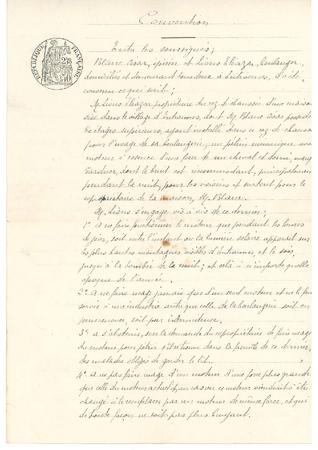 Convention
Entre les soussignés;
Blanc César, épicier et Lions Eléazar, boulanger,
domiciliés et demeurant tous deux à Entraunes, il a été
convenu ce qui suit:
M. Lions Eléazar propriétaire du rez de chaussée d'une maison
sise dans le village d'Entraunes, dont M. Blanc César possède
les étages supérieurs, ayant installé dans ce rez de chaussée
pour l'usage de sa boulangerie, un pétrin mécanique avec
moteur à essence d'une force de un cheval et demi, marque
dont le bruit est incommodant, principalement
pendant la nuit, pour les voisins et surtout pour le
propriétaire de la maison, M. Blanc.
M. Lions s'engage vis à vis de ce dernier;
1° à ne faire fonctionner le moteur que pendant les heures
de jour, soit entre l'instant où la lumière solaire apparait sur
les plus hautes montagnes d'Entraunes et le soir
jusqu'à la tombée de la nuit; et cela à n'importe quelle
époque de l'année.
2° à ne faire usage jamais que d'un seul moteur et à ne le faire
servir à une industrie autre que celle de la boulangerie soit en
permanence, soit par intermittence.
3° à s'abstenir, sur la demande du copropriétaire de faire usage
du moteur pour pétrir s'il se trouve dans la famille de ce dernier,
des malades obligés de garder le lit.
4° à ne pas faire usage d'un moteur d'une force plus grande
que celle du moteur actuel et au cas où ce moteur viendrait à être
changé à le remplacer par un moteur de même force, et qui
de toute façon ne soit pas plus bruyant.